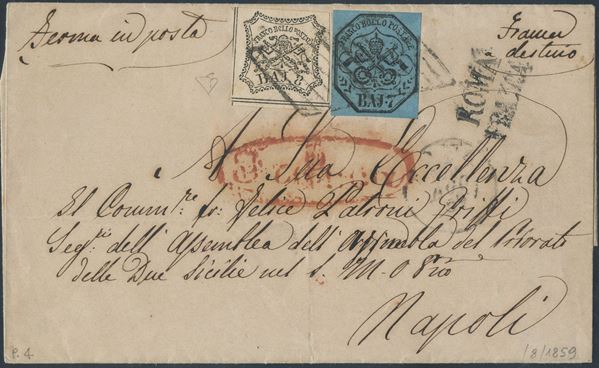 Ferma in posta
FRANCO BOLLO POSTALE
BAJ. 8
FRANCO BOLLO POSTALE
BAJ. 7
Franca
destino
ROMA
A Sua Eccellenza
Il Comm.re fr. Felice Patroni Griffi
Seg.rio dell'Assemblea dell' del Priorato
delle Due Sicilie nel S. M. O.
Napoli
P. 4
/8/1859